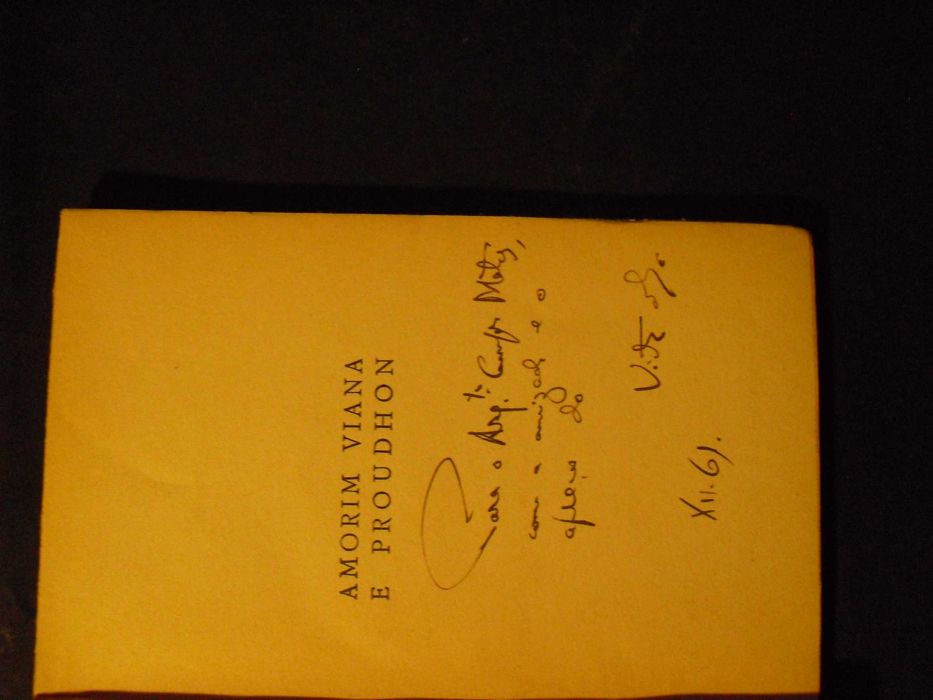 AMORIM VIANA
E PROUDHON
Para o Arq.to Campos Matos,
com a amizade e o
apreço do
Vítor de Sá.
XII.61.